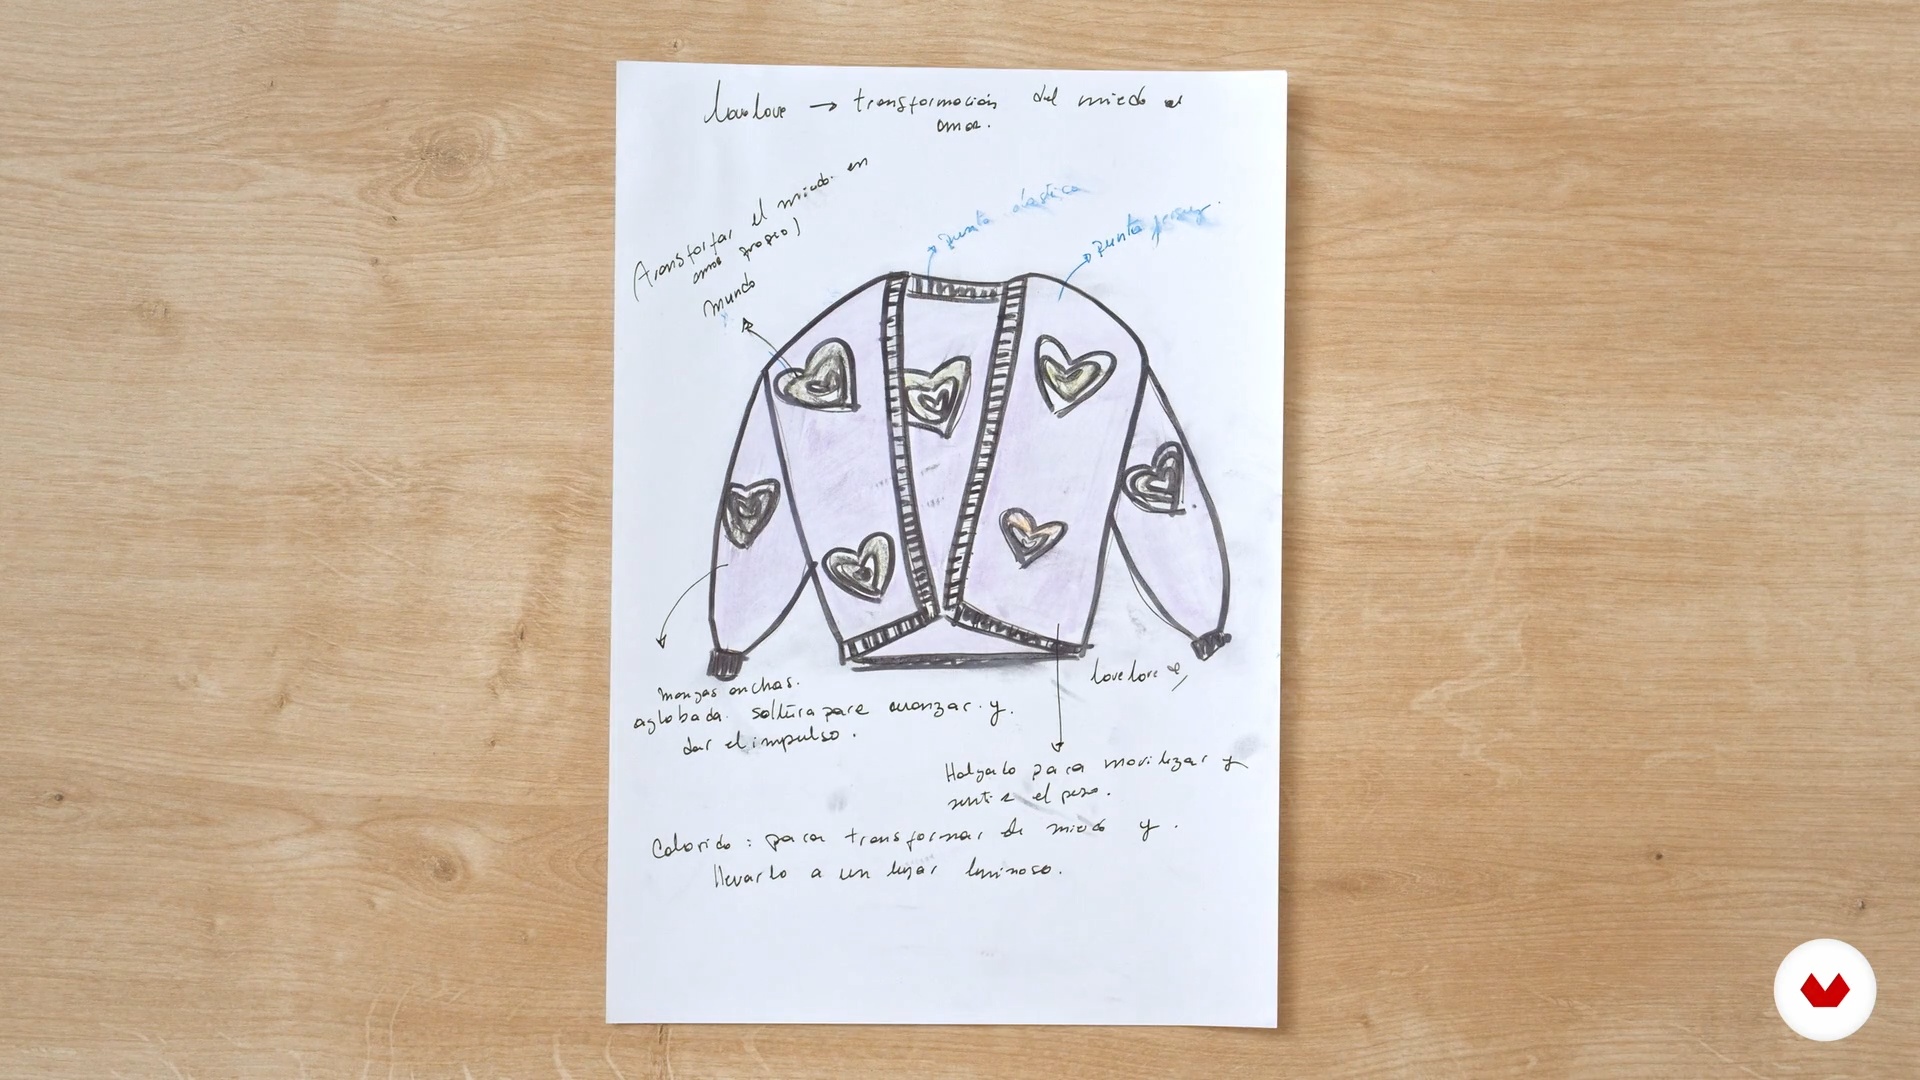 lovelove → transformación del miedo al
amor.
(Transfortar el miedo en
amor propio)
Mundo
punto elástico
punto jersey.
mangas anchas.
aglobada. soltura para avanzar y.
dar el impulso.
lovelove
Holgado para movilizar y
sentir el peso.
Colorido: para transformar de miedo y.
llevarlo a un lugar luminoso.